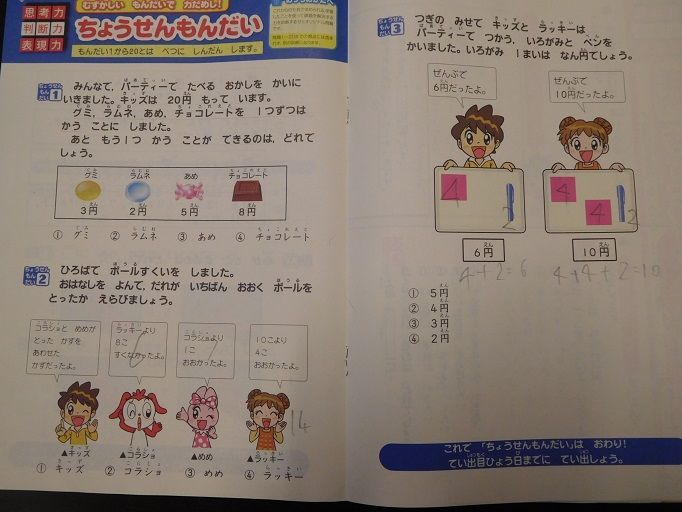 思考力
判断力
表現力
むずかしい もんだいで 力だめし!
ちょうせんもんだい
もんだい1から20とは べつに しんだん します。
ちょうせんもんだい1
みんなで、パーティーで たべる おかしを かいに
いきました。キッズは 20円 もって います。
グミ、ラムネ、あめ、チョコレートを 1つずつは
かう ことに しました。
あと もう1つ かう ことが できるのは、どれで
しょう。
グミ ラムネ あめ チョコレート
3円 2円 5円 8円
① グミ ② ラムネ ③ あめ ④ チョコレート
ちょうせんもんだい2
ひろばで ボールすくいを しました。
おはなしを よんで、だれが いちばん おおく ボールを
とったか えらびましょう。
コラショと めめが
とった かずを
あわせた
かずだったよ。
ラッキーより
8こ
すくなかったよ。
コラショより
1こ
おおかったよ。
10こより
4こ
おおかったよ。
14
▲キッズ ▲コラショ ▲めめ ▲ラッキー
① キッズ ② コラショ ③ めめ ④ ラッキー
ちょうせんもんだい3
つぎの みせで キッズと ラッキーは
パーティーで つかう、いろがみと ペンを
かいました。いろがみ 1まいは なん円でしょう。
ぜんぶで
6円だったよ。
ぜんぶで
10円だったよ。
4 2
4 4 2
6円 10円
4+2=6 4+4+2=10
① 5円
② 4円
③ 3円
④ 2円
これで 「ちょうせんもんだい」は おわり!
てい出目ひょう日までに てい出しよう。